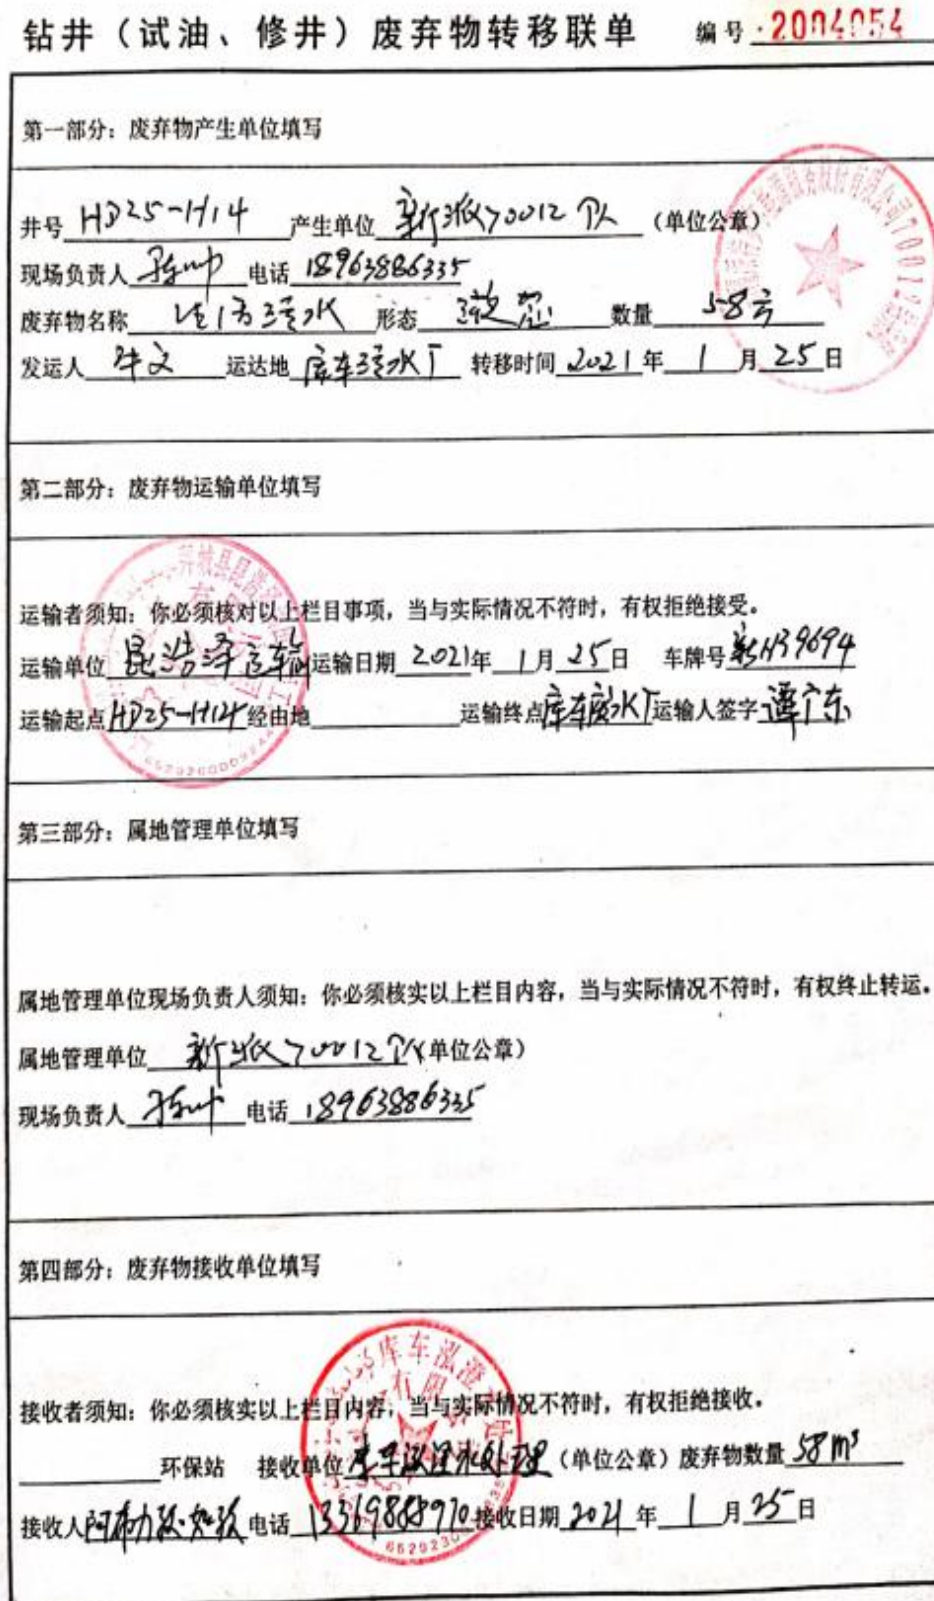 钻井（试油、修井）废弃物转移联单 编号 2004054
第一部分：废弃物产生单位填写
井号 HD25-H14 产生单位 70012 （单位公章）
现场负责人 电话 18963886335
废弃物名称 水 形态 液态 数量 58方
发运人 牟文 运达地 库车 水厂 转移时间 2021 年 1 月 25 日
第二部分：废弃物运输单位填写
运输者须知：你必须核对以上栏目事项，当与实际情况不符时，有权拒绝接受。
运输单位 昆浩泽运输 运输日期 2021年 1月 25日 车牌号 新N39694
运输起点 HD25-H14 经由地 运输终点 库车废水厂 运输人签字 谭广东
第三部分：属地管理单位填写
属地管理单位现场负责人须知：你必须核实以上栏目内容，当与实际情况不符时，有权终止转运。
属地管理单位 70012 （单位公章）
现场负责人 电话 18963886335
第四部分：废弃物接收单位填写
接收者须知：你必须核实以上栏目内容，当与实际情况不符时，有权拒绝接收。
环保站 接收单位 库车泓澄水处理 （单位公章）废弃物数量 58m³
接收人 电话 13319888970 接收日期 2021 年 1 月 25 日